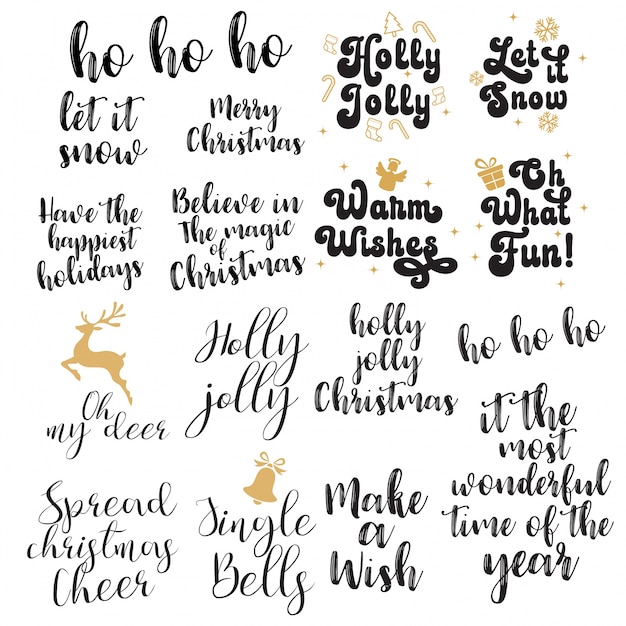 ho ho ho
let it
snow
Merry
Christmas
Holly
Jolly
Let it
Snow
Have the
happiest
holidays
Believe in
The magic
of
Christmas
Warm
Wishes
Oh
What
Fun!
Oh
my deer
Holly
jolly
holly
jolly
Christmas
ho ho ho
it the
most
wonderful
time of the
year
Spread
christmas
Cheer
Jingle
Bells
Make
a
Wish